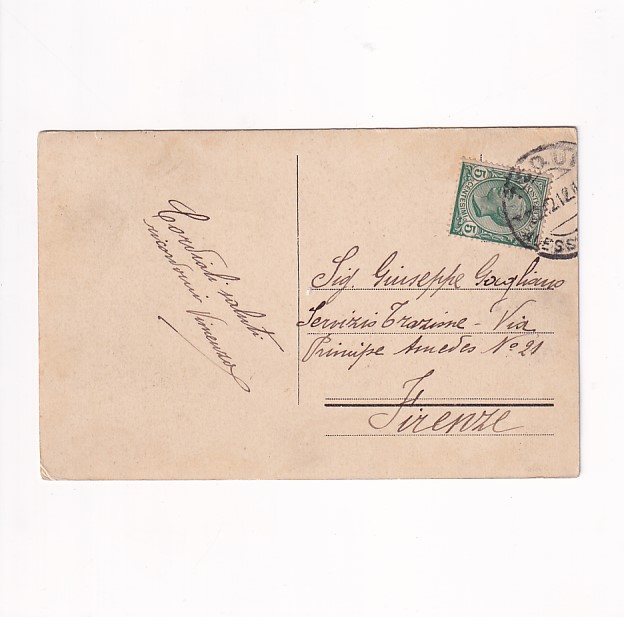 Cordiali saluti
ricordami Vincenzo
5 CENTESIMI 5
ESS
Sig. Giuseppe Gagliano
Servizio Trazione - Via
Principe Amedeo No 21
Firenze